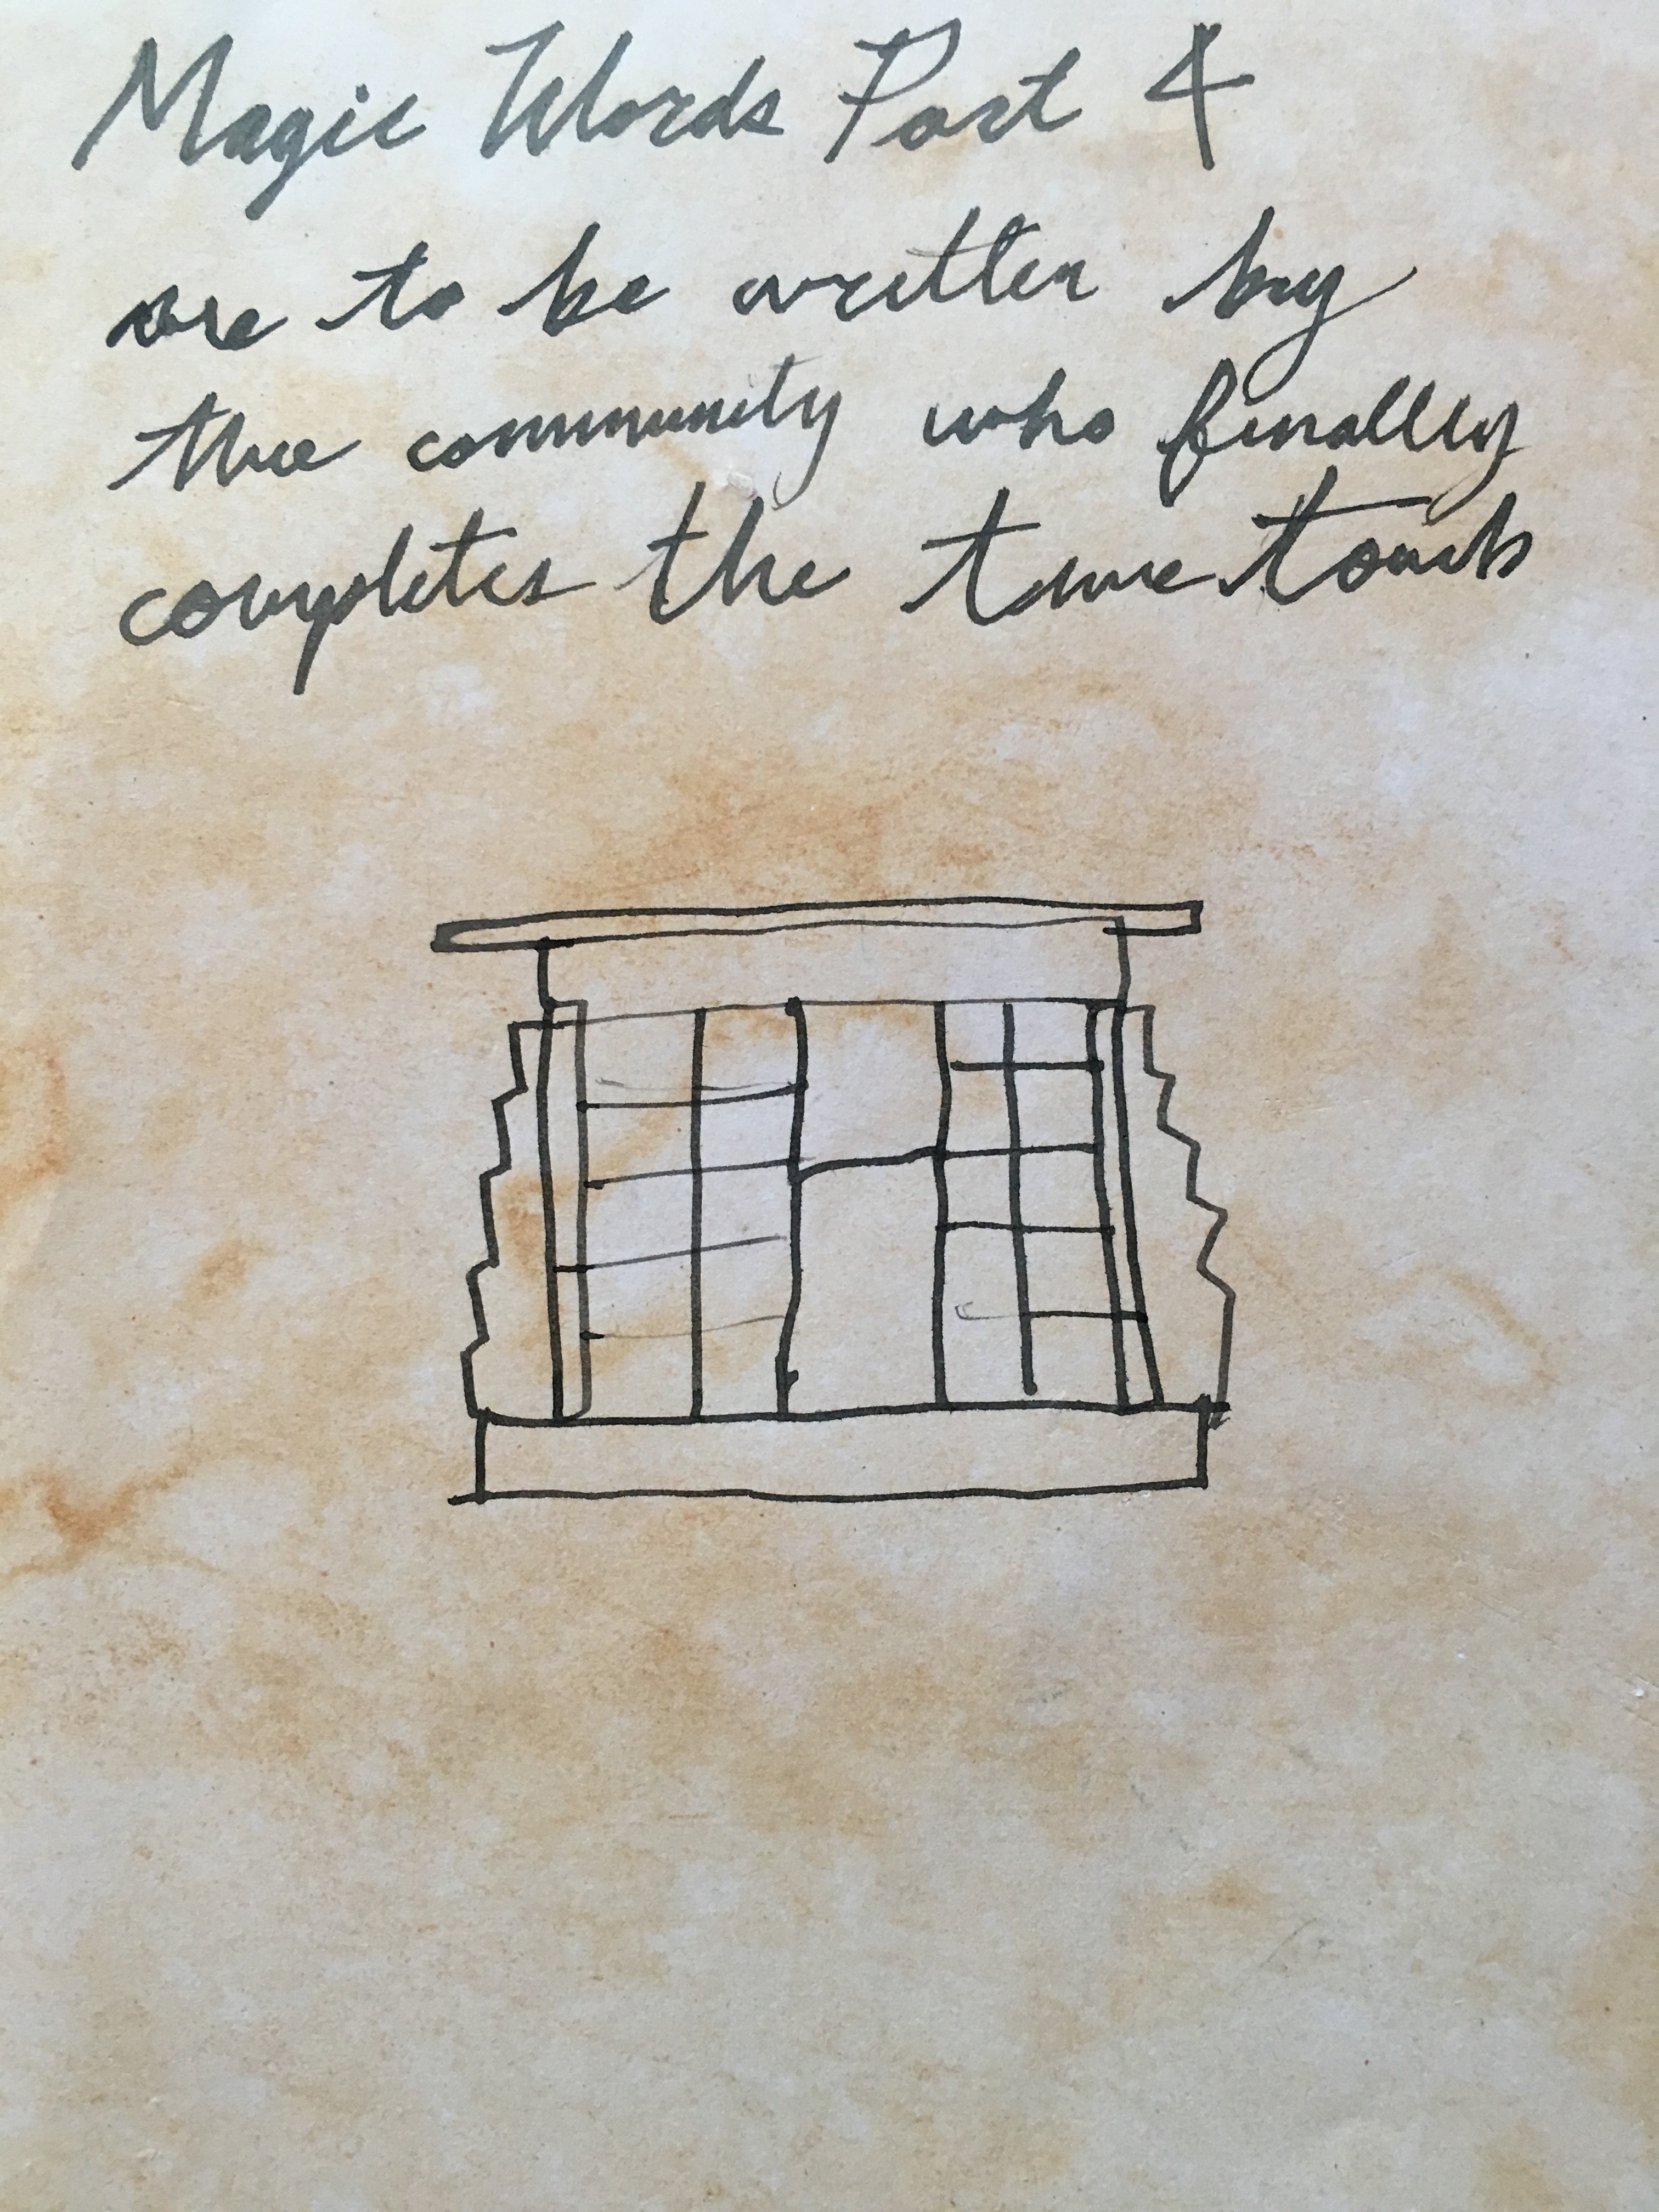 Magic Words Part 4
are to be written by
the community who finally
completes the time tomb